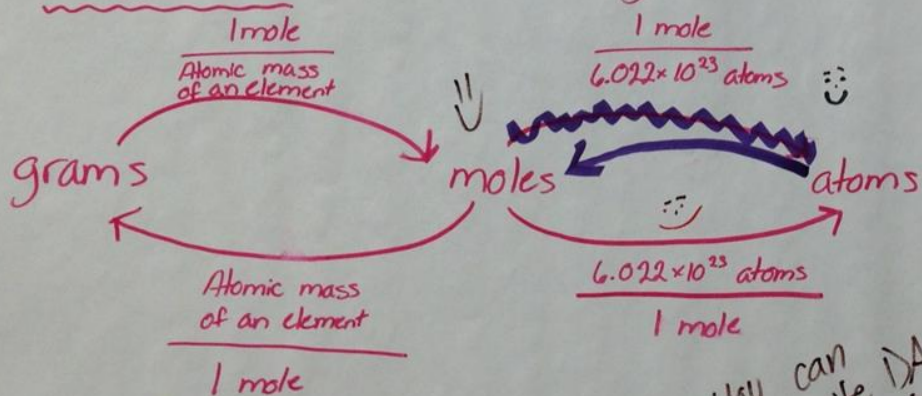 1 mole
Atomic mass
of an element
1 mole
6.022 × 10²³ atoms
grams
moles
atoms
Atomic mass
of an element
1 mole
6.022 × 10²³ atoms
1 mole
can